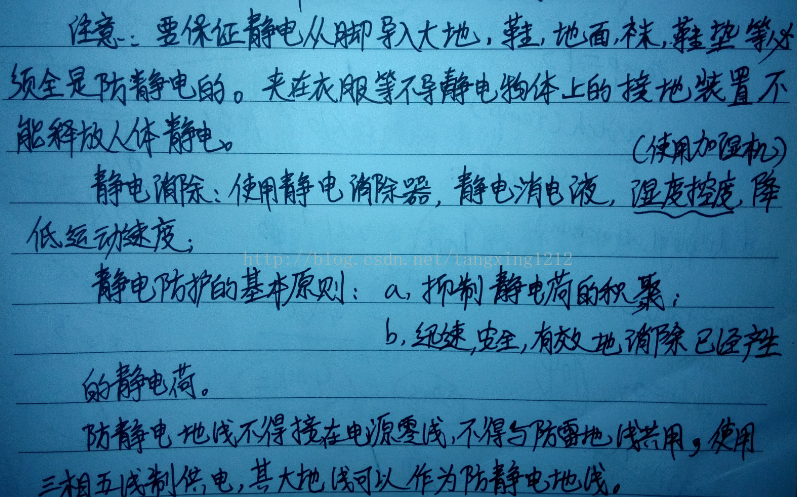 注意：要保证静电从脚导入大地，鞋，地面，袜，鞋垫等必
须全是防静电的。夹在衣服等不导静电物体上的接地装置不
能释放人体静电。
(使用加湿机)
静电消除：使用静电消除器，静电消电液，湿度控度，降
低运动速度；
http://blog.csdn.net/tangxing1212
静电防护的基本原则：a，抑制静电荷的积聚；
b，迅速，安全，有效地消除已经产生
的静电荷。
防静电地线不得接在电源零线，不得与防雷地线共用，使用
三相五线制供电，其大地线可以作为防静电地线。